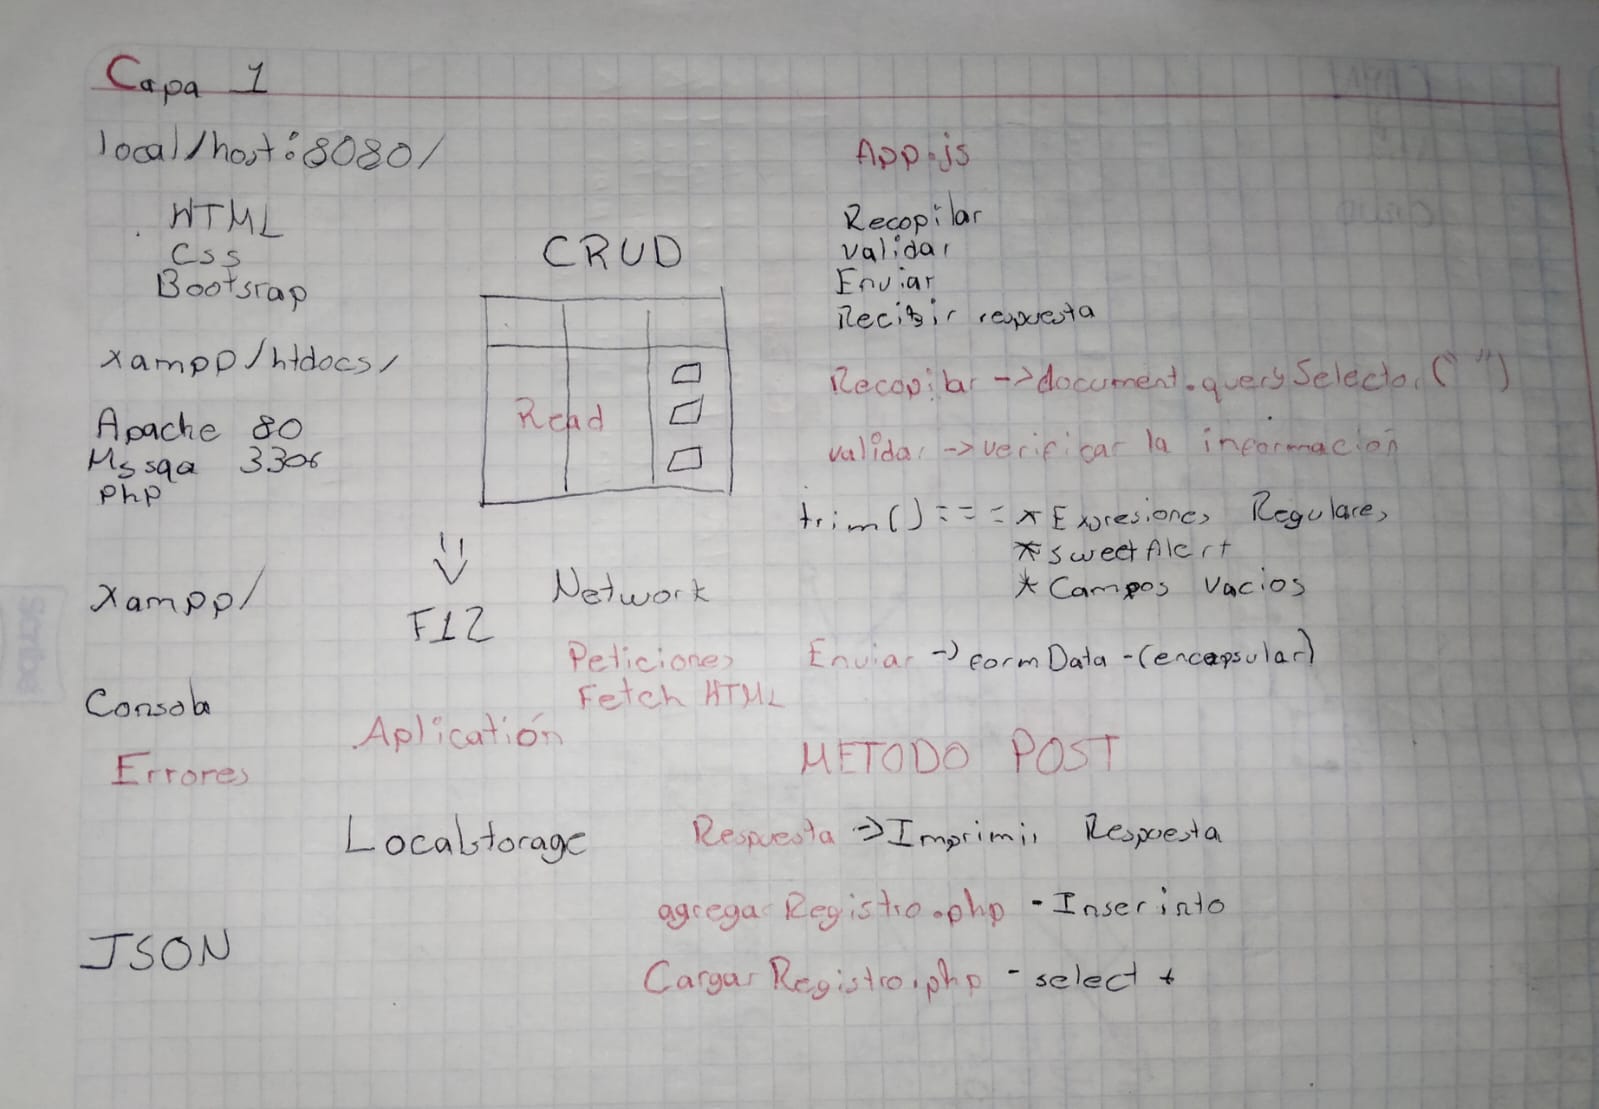 Capa 1
local/host:8080/
HTML
Css
Bootsrap
xampp/htdocs/
Apache 80
Mssqa 3306
php
xampp/
Consola
Errores
JSON
CRUD
Read
F12
Network
Peticiones
Fetch HTML
Aplicatión
Localstorage
App.js
Recopilar
validar
Enviar
Recibir respuesta
Recopilar ->document.querySelector(" ")
validar ->verificar la información
trim() === * Expresiones Regulares
* sweetAlert
* Campos vacios
Enviar -> formData -(encapsular)
METODO POST
Respuesta => Imprimir Respuesta
agregarRegistro.php - Inser into
CargarRegistro.php - select *